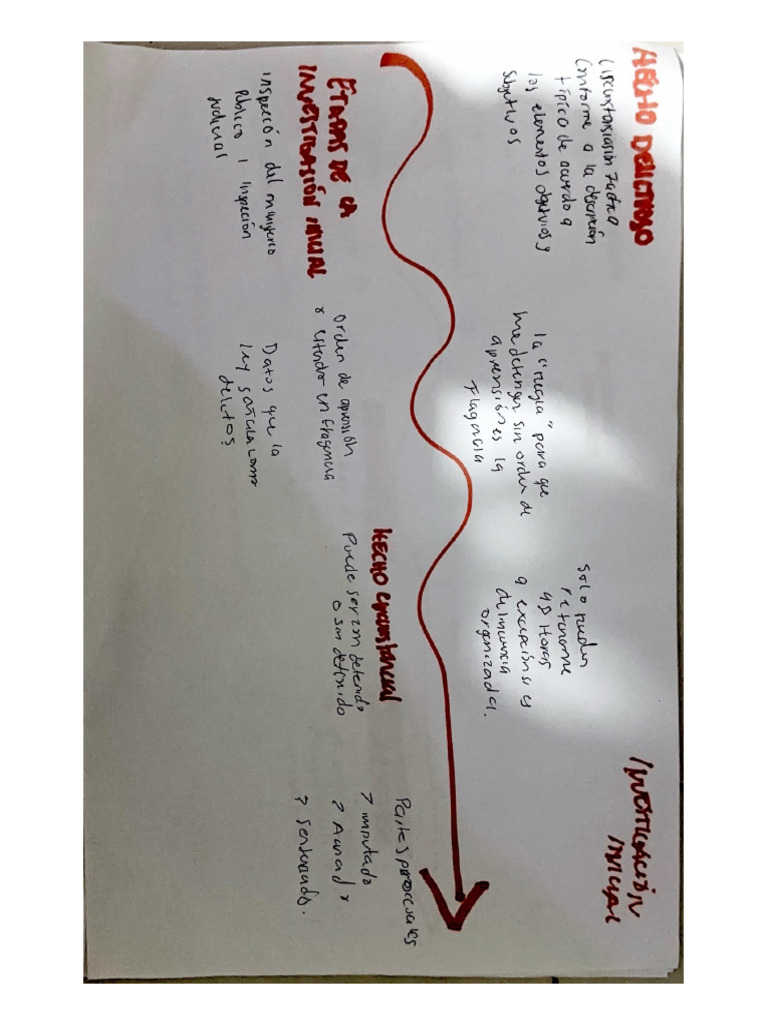 HECHO DELICTIVO
Circunstansiasión Factica
Conforme a la descripción
típico de acuerdo a
los elementos objetivios y
subjetivos
la "regla" para que
me detengan sin orden de
aprensión es la
Flagancia
Solo pueden
retenerme
48 Horas
a excepción si es
delincuencia
organizada.
INVESTIGACIÓN
INICIAL
ETAPAS DE LA
INVESTIGACIÓN INICIAL
Inspección del ministerio
Público / Inspeción
Judicial
Orden de aprensión
x estando en Flagencia
Datos que la
ley señala como
delitos
HECHO circunstancial
Puede ser con detenido
o sin detenido
Partes procesales
> imputado
> Acusado
> Sentenciado.